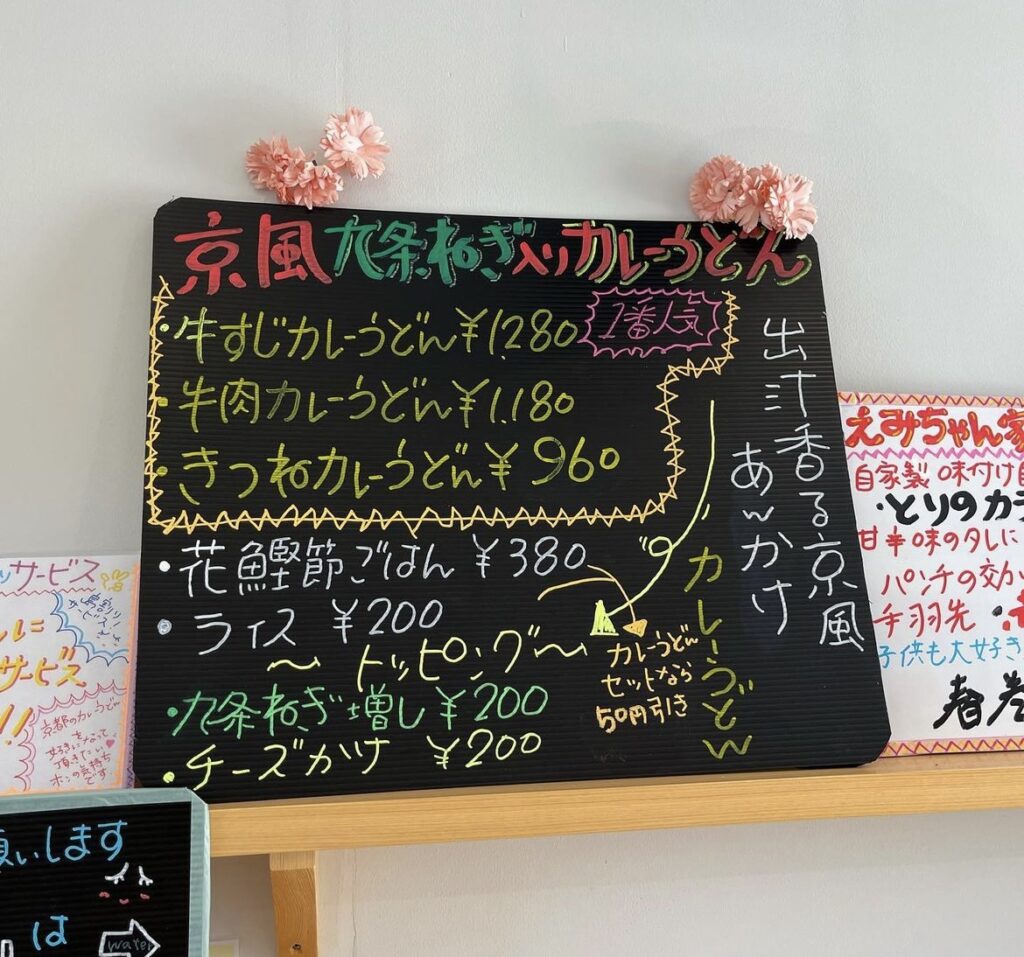 京風九条ねぎ入りカレーうどん
・牛すじカレーうどん¥1,280
1番人気
・牛肉カレーうどん¥1,180
・きつねカレーうどん¥960
・花鰹節ごはん ¥380
・ライス ¥200
〜トッピング〜
・九条ねぎ増し¥200
・チーズかけ ¥200
カレーうどん
セットなら
50円引き
出汁香る京風
あんかけ
カレーうどん
サービス
サービス
!!
京都のカレーうどん
好きになって
頂きたい
ホンの気持ち
です
願いします
は
water
えみちゃん家
自家製 味付け
・とりのカラ
甘辛味のタレに
パンチの効か
手羽先
子供も大好き
春巻